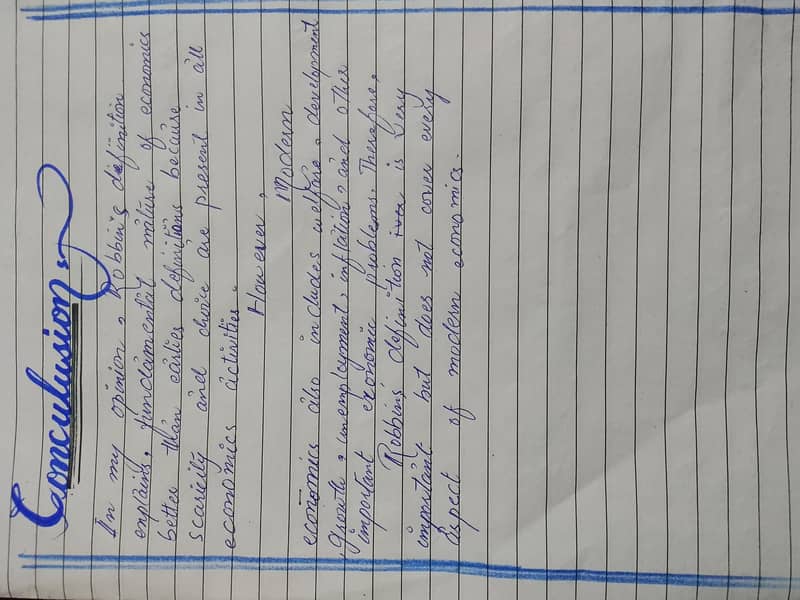 Conculusion :
In my opinion, Robbin's definition
explains, fundamental nature of economics
better than earlies definitions because
scaricity and choice are present in all
economics activities.
However, Modern
economics also includes welfare, development
Growth, unemployment, inflation, and other
important exonomic problems. Therefore,
Robbins' definition is very
important but does not cover every
aspect of modern economics.